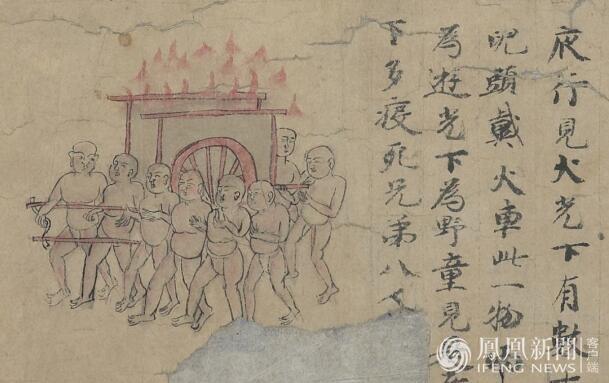 夜行見火光下有數
兒頭戴火車此一物
為遊光下為野童見
下多疫死兄弟八
鳳凰新聞
客户端
IFENG NEWS